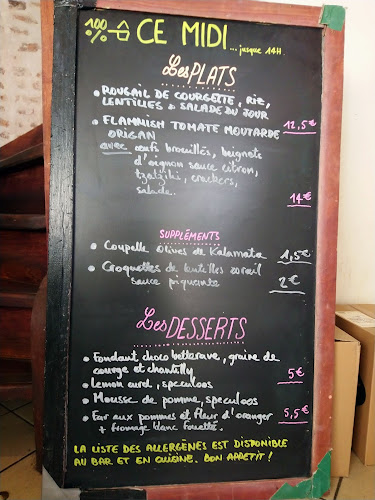 100% CE MIDI... jusque 14H
Les PLATS
• ROUGAIL DE COURGETTE, RIZ,
LENTILLES + SALADE DU JOUR
12,5€
• FLAMNIEN TOMATE MOUTARDE
ORIGAN
avec œufs brouillés, beignets
d'oignon sauce citron,
tzatziki, crackers,
salade.
14€
SUPPLÉMENTS
• Coupelle Olives de Kalamata 1,5€
• Croquettes de lentilles corail
sauce piquante 2€
Les DESSERTS
• Fondant choco betterave, graine de
courge et chantilly,
5€
• Lemon curd, speculoos
• Mousse de pomme, speculoos
• Far aux pommes et fleur d'oranger 5,5€
+ fromage blanc fouetté.
LA LISTE DES ALLERGÈNES EST DISPONIBLE
AU BAR ET EN CUISINE. BON APPETIT !